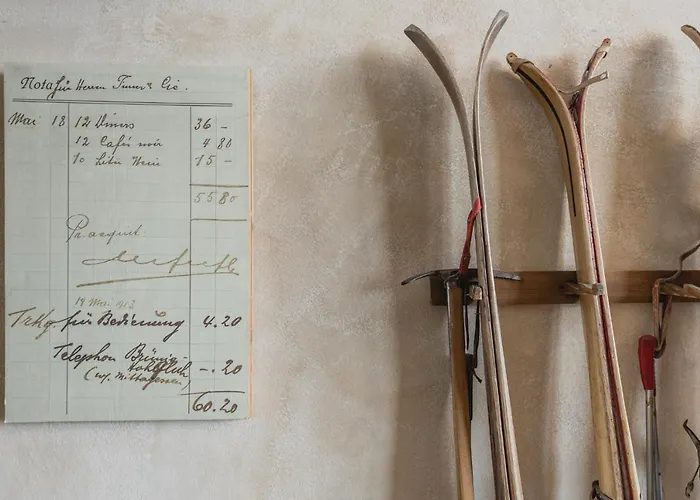 Nota für Herren Turrer & Cie.
Mai 18 12 Diners 36 -
12 Cafés noir 4 80
10 Liter Wein 15 -
55 80
Pr. acquit
14 Mai 1913
Trkg. für Bedienung 4.20
Telephon Brünig-
-. 20
(wg. Mittagessen)
60.20